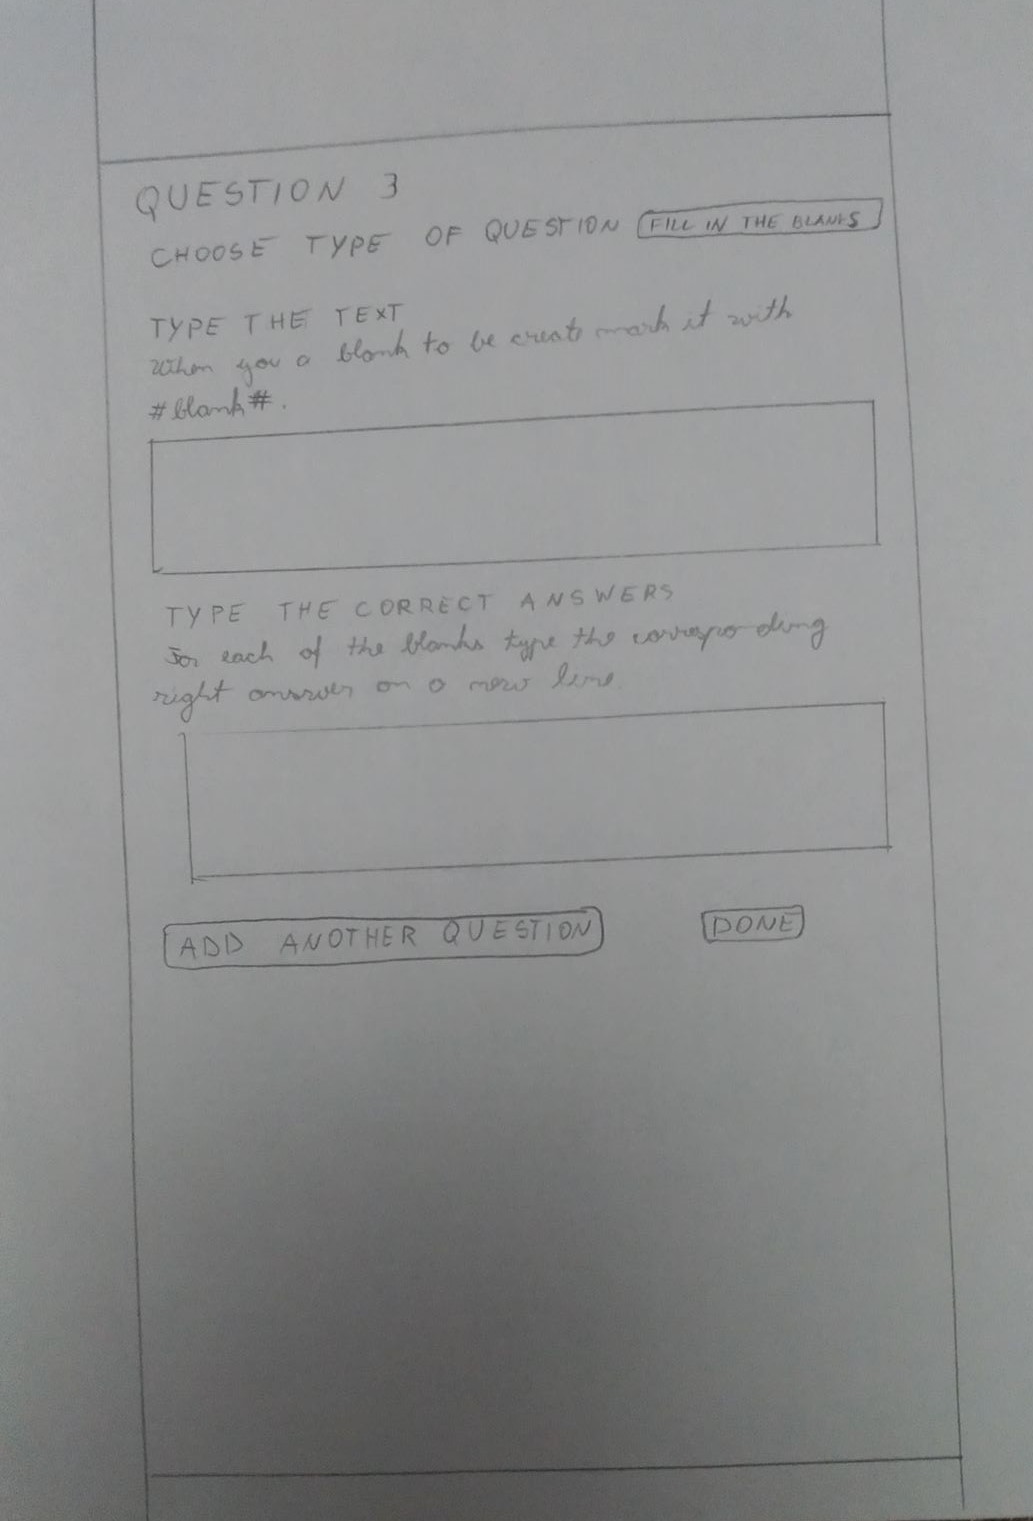 QUESTION 3
CHOOSE TYPE OF QUESTION FILL IN THE BLANKS
TYPE THE TEXT
When you a blank to be create mark it with
#blank#.
TYPE THE CORRECT ANSWERS
For each of the blanks type the corresponding
right answer on a new line.
ADD ANOTHER QUESTION DONE